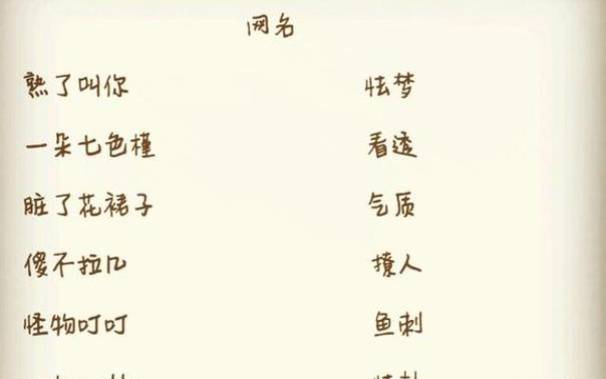 网名
熟了叫你 怯梦
一朵七色槿 看透
脏了花裙子 气质
傻不拉几 撩人
怪物叮叮 鱼刺